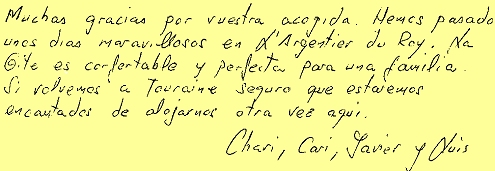 Muchas gracias por vuestra acogida. Hemos pasado
unos dias maravillosos en L'Argentier du Roy. La
Gite es confortable y perfecta para una familia.
Si volvemos a Touraine seguro que estaremos
encantados de alojarnos otra vez aqui.
Chari, Cari, Javier y Luis